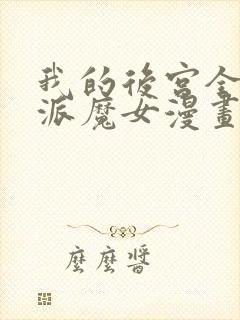 我的後宮全
派魔女漫畫
麼麼醬